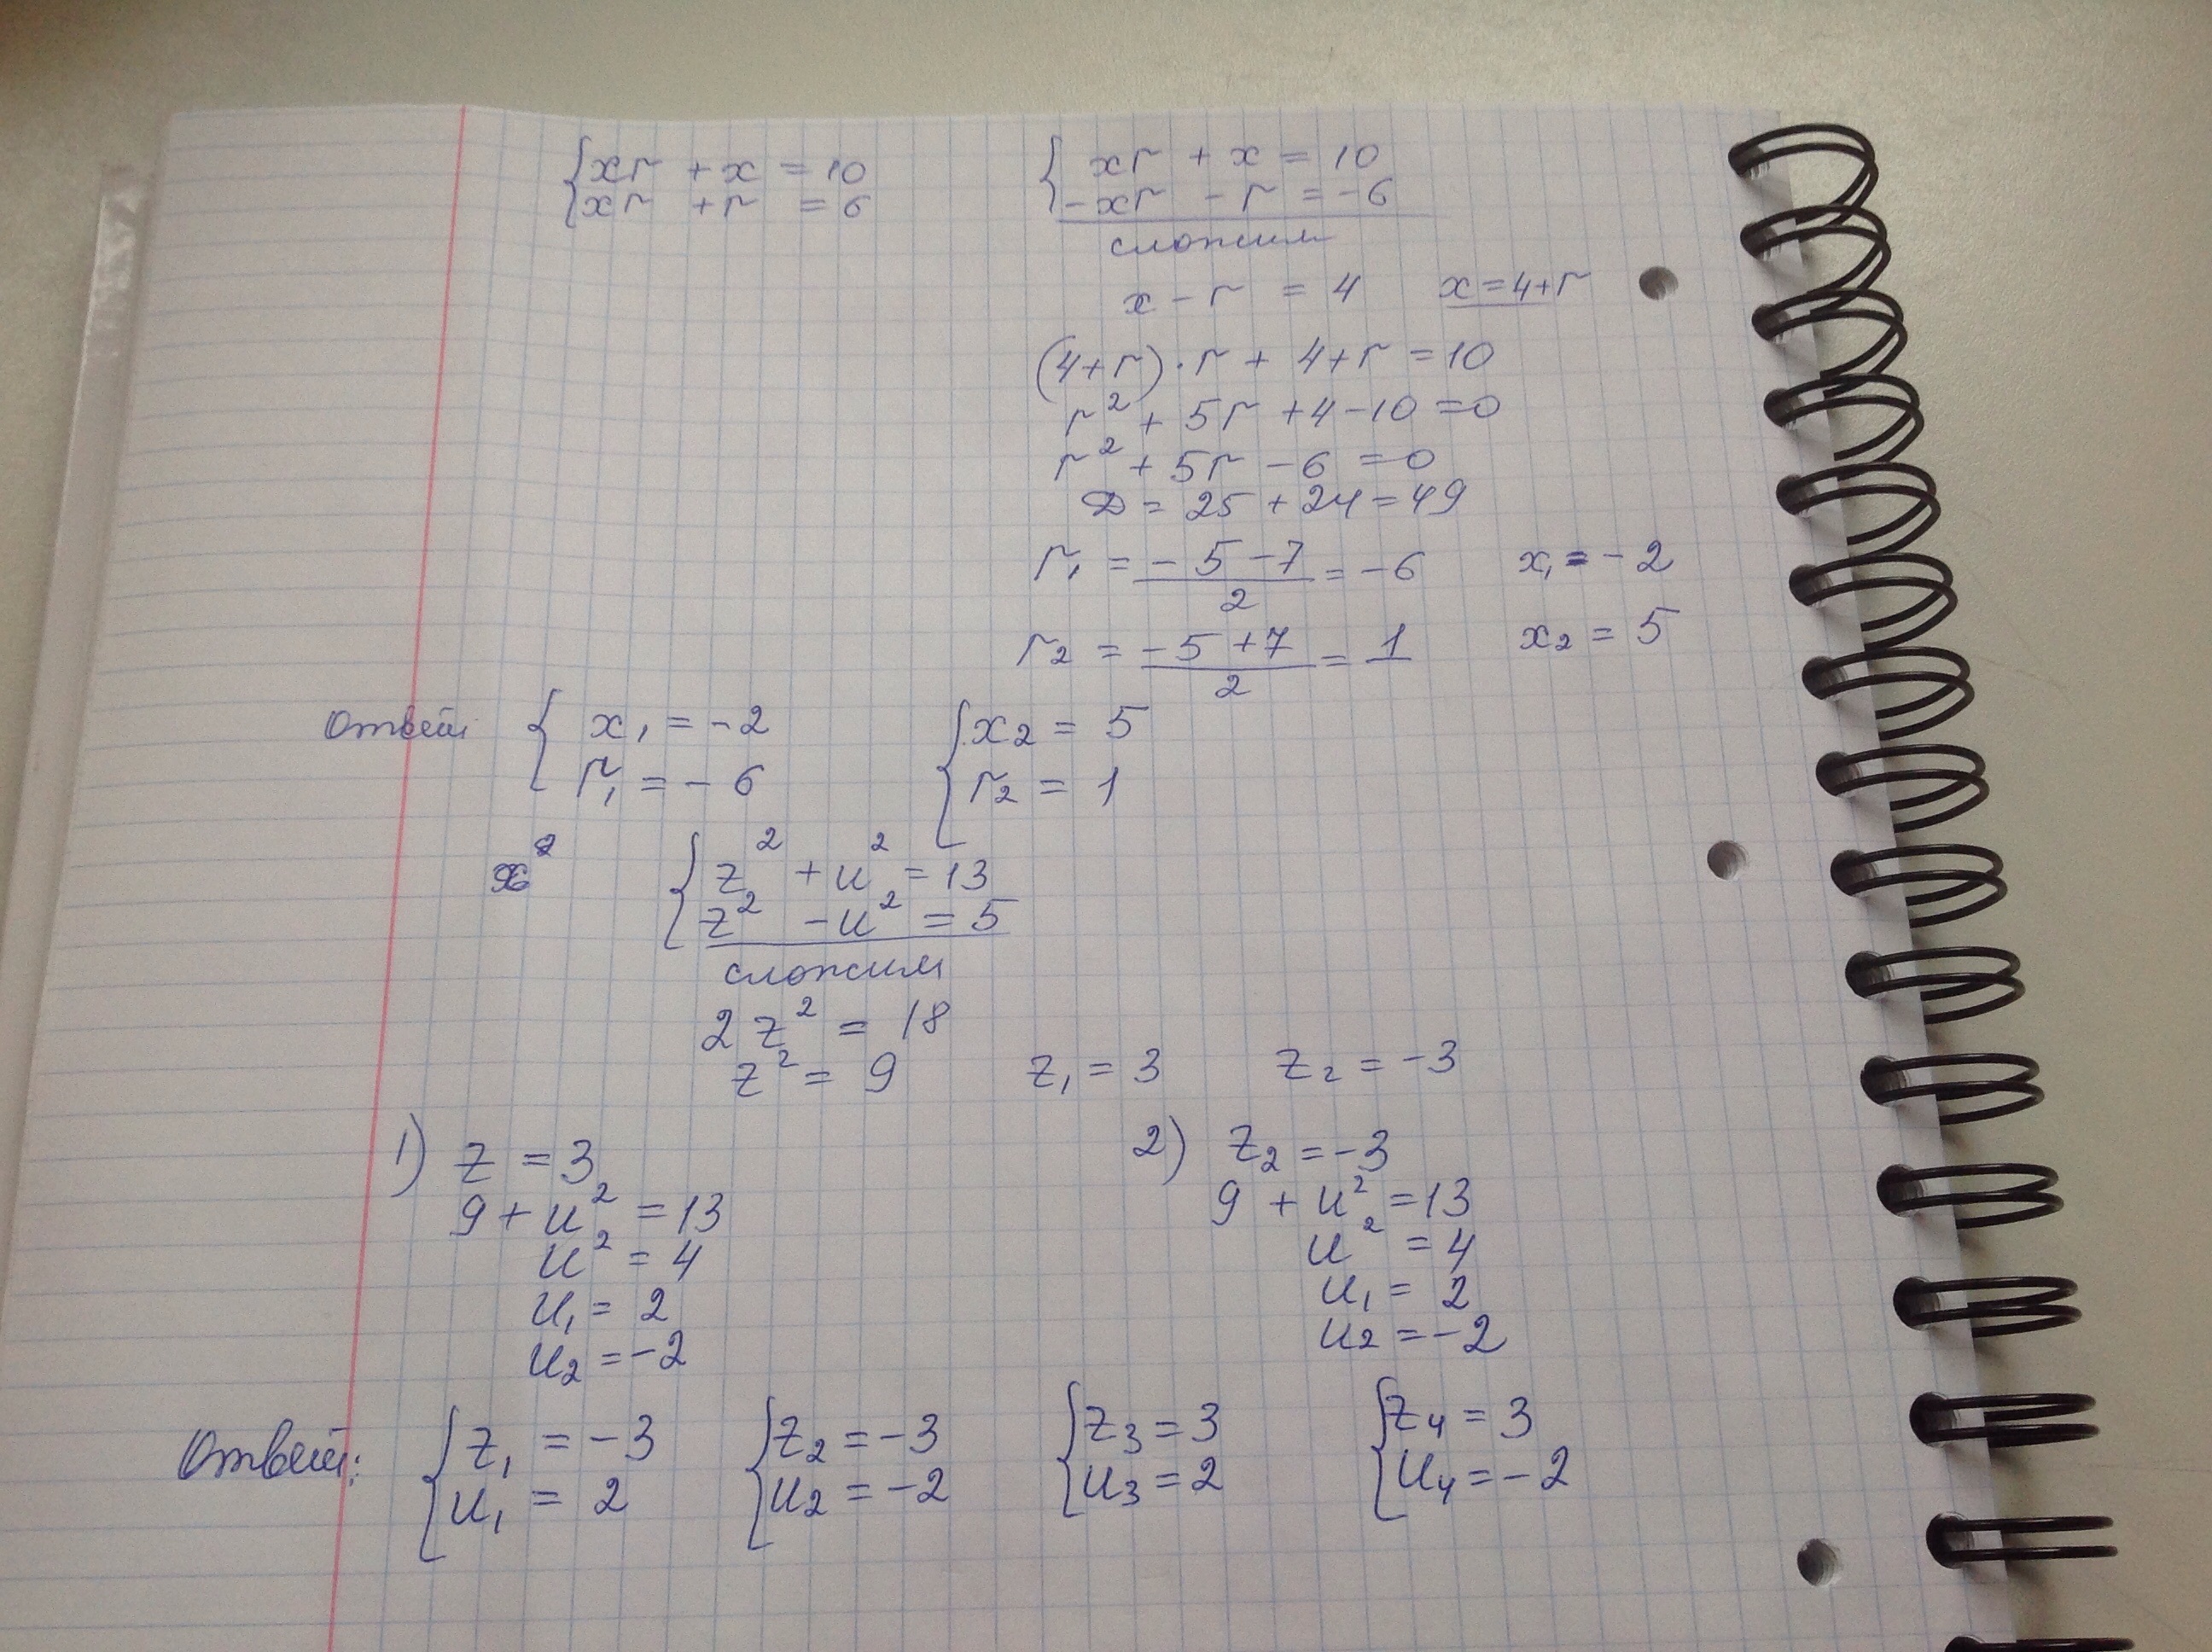 {xr + x = 10
{xr + r = 6
{xr + x = 10
-xr - r = -6
сложим
x - r = 4 x = 4+r
(4+r)·r + 4+r = 10
r² + 5r + 4 - 10 = 0
r² + 5r - 6 = 0
D = 25 + 24 = 49
r₁ = (-5-7)/2 = -6 x₁ = -2
r₂ = (-5+7)/2 = 1 x₂ = 5
Ответ { x₁ = -2 { x₂ = 5
r₁ = -6 r₂ = 1
x²
{ z² + u² = 13
z² - u² = 5
сложим
2z² = 18
z² = 9 z₁ = 3 z₂ = -3
1) z = 3
9 + u² = 13
u² = 4
u₁ = 2
u₂ = -2
2) z₂ = -3
9 + u² = 13
u² = 4
u₁ = 2
u₂ = -2
Ответ: { z₁ = -3 { z₂ = -3 { z₃ = 3 { z₄ = 3
u₁ = 2 u₂ = -2 u₃ = 2 u₄ = -2